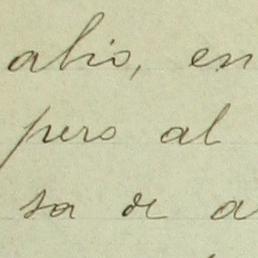 alio, en
pero al
sa de a